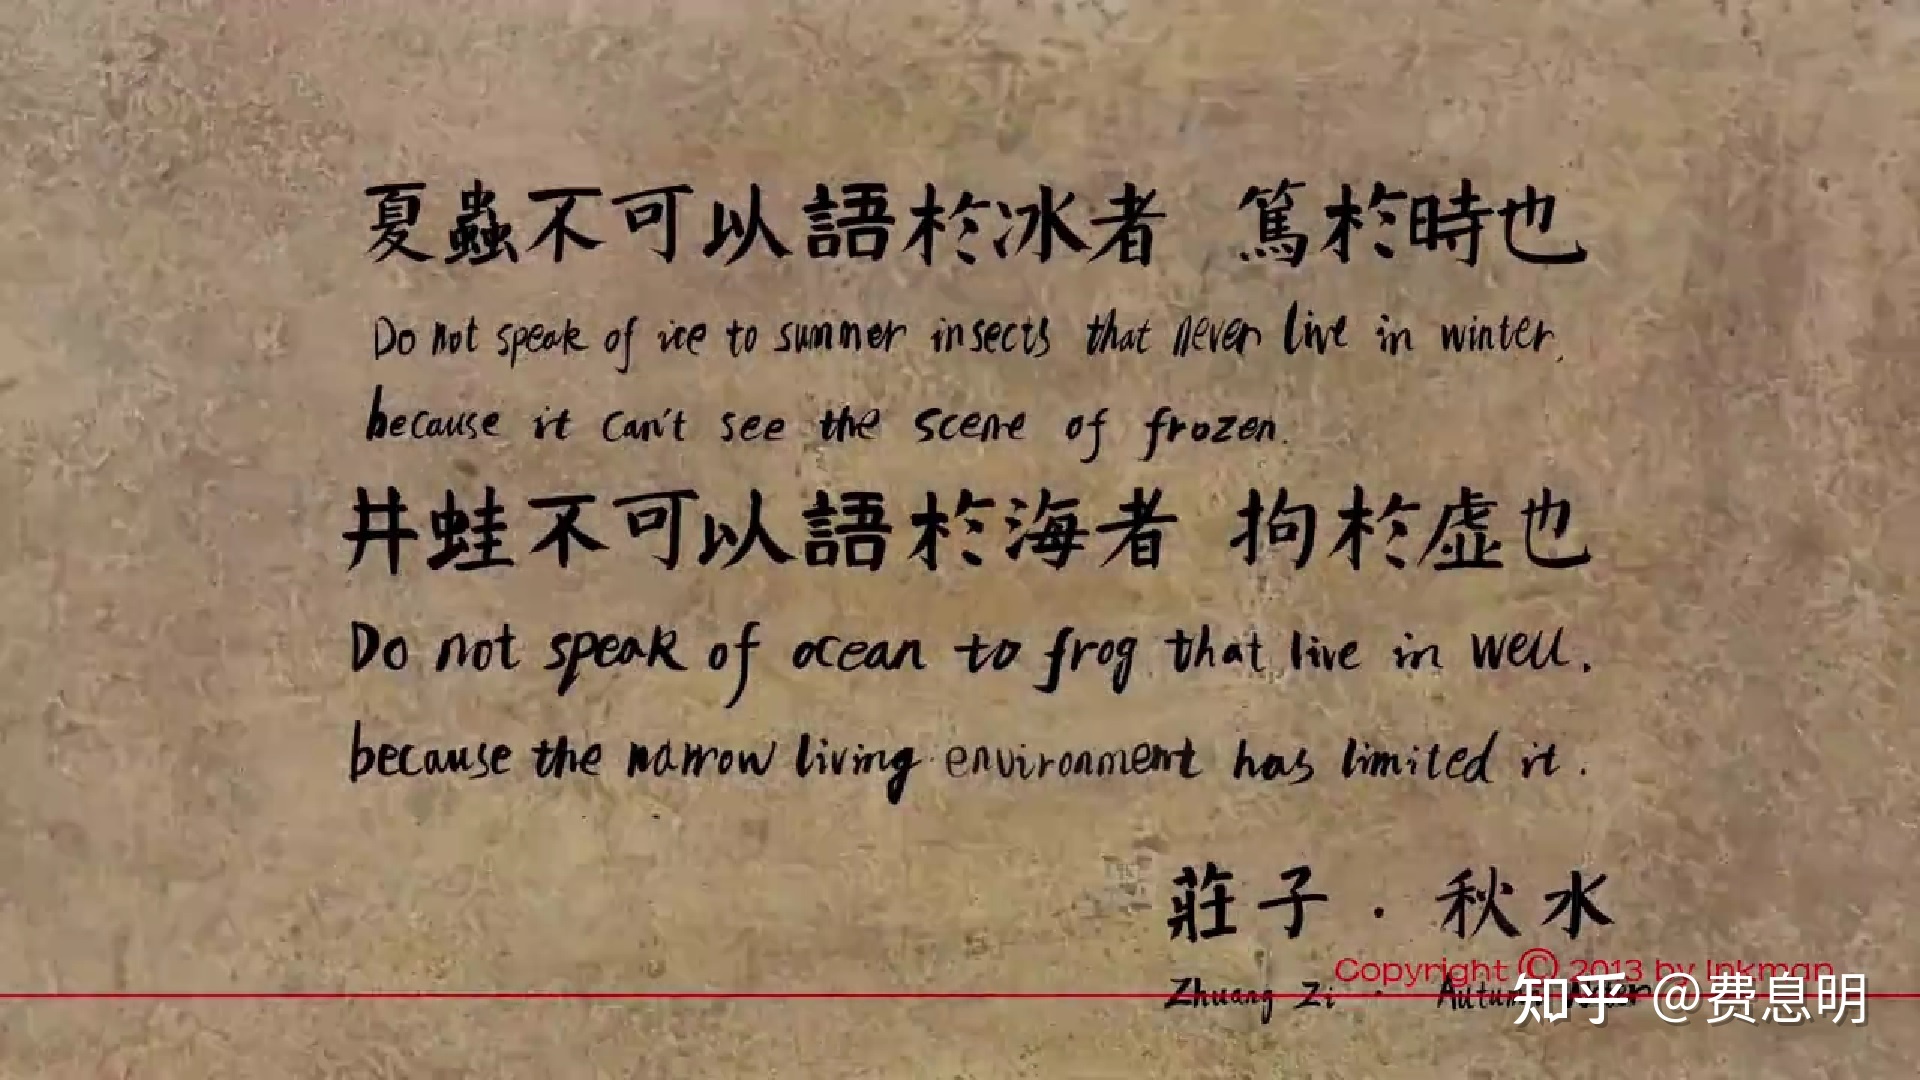 夏蟲不可以語於冰者 篤於時也
Do not speak of ice to summer insects that never live in winter,
because it can't see the scene of frozen.
井蛙不可以語於海者 拘於虛也
Do not speak of ocean to frog that live in well.
because the narrow living environment has limited it.
莊子·秋水
Copyright © 2013 by Inkman
Zhuang Zi ·
知乎 @费息明